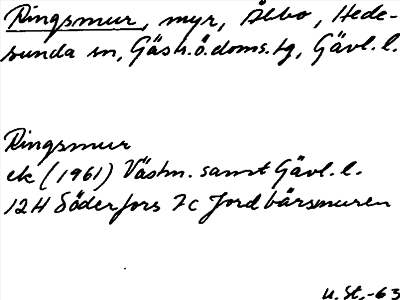 Ringsmur, myr, Ålbo, Hede-
sunda sn, Gästr.ö.doms.tg, Gävl.l.
Ringsmur
ek (1961) Västm. samt Gävl.l.
12H Söderfors 7c Jordbärsmuren
U.St.-63